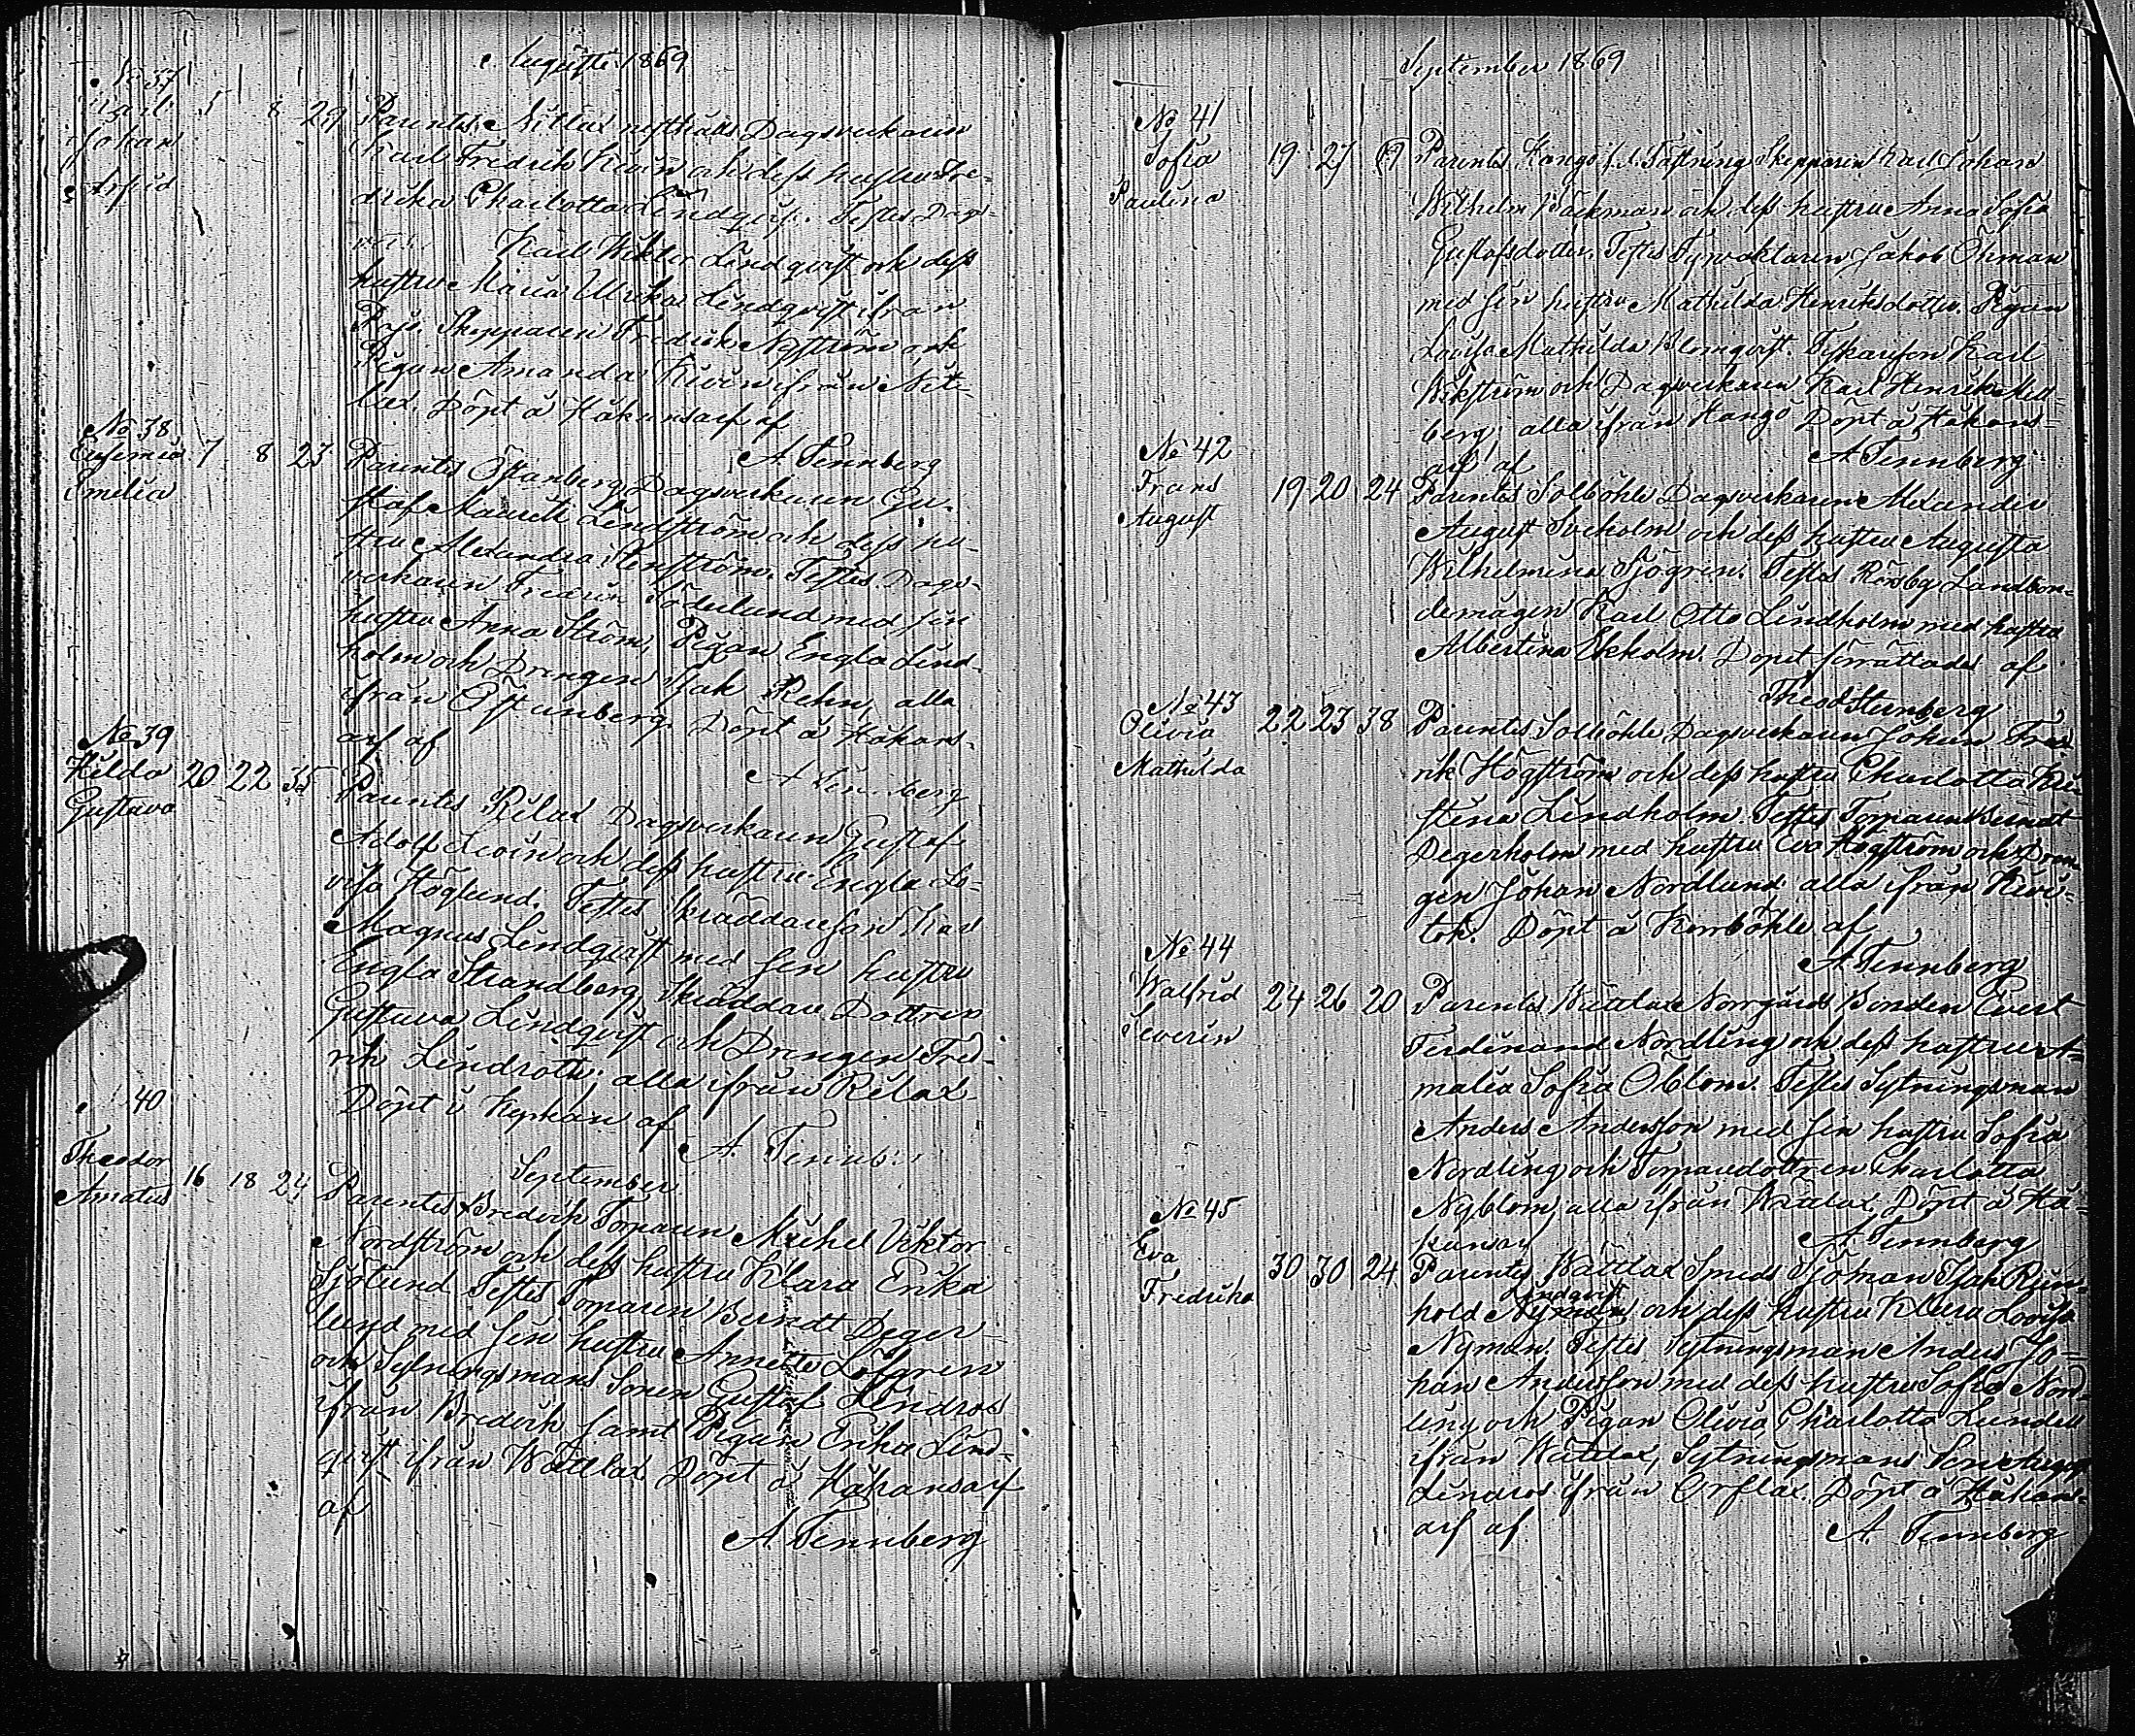 Augusti 1869
No 37
Karl 5 8 29 Parentes Nitlax nysthälls Dagsverkaren
Johan Karl Fredrik Kivin och dess hustru Fre-
Arfrid drika Charlotta Lindqvist. Testes Dags-
Karl Wiktor Lindqvist och dess
hustru Maria Ulrika Lindqvist ifrån
Skepparen Fredrik Nyström och
Pigan Amanda Kivin ifrån Nit-
lax. Döpt å Håkansarf af
A Tennberg
No 38
Eufemia 7 8 23 Parentes Östanberg Dagsverkaren Gu-
Emelia staf Maurits Lindström och dess hu-
stru Alexandra Stenström. Testes Dags-
verkaren Fredrik Söderlund med sin
hustru Anna Ström, Pigan Engla Lind-
holm och Drengen Isak Rehn, alla
ifrån Östanberg. Döpt å Håkans-
arf af
A Tennberg
No 39
Hilda 20 22 35 Parentes Rilax Dagsverkaren Gustaf
Gustava Adolf Livin och dess hustru Engla Lo-
visa Höglund. Testes Skräddaresonen Karl
Magnus Lindqvist med sin hustru
Engla Strandberg, Skräddare Dottren
Gustava Lindqvist och Drengen Fred-
rik Lindroth; alla ifrån Rilax.
Döpt i Kyrkan af
A. Tennb
September
40
Theodor 16 18 24 Parentes Bredvik Torparen Mickel Viktor
Amatus Nordström och dess hustru Klara Erika
Sjölund. Testes Torparen Berndt Deger-
lund med sin hustru Annette Löfgren
och Sytningsmans Sonen Gustaf Lindros
ifrån Bredvik samt Pigan Erika Lind-
qvist ifrån Wättlax. Döpt å Håkansarf
af
A Tennberg
September 1869
No 41
Sofia 19 27 Parentes Hangö f.d. Fästning Skepparen Karl Johan
Paulina Wilhelm Bäckman och dess hustru Anna Sofia
Gustafsdotter. Testes Fyrvaktaren Jakob Öhman
med sin hustru Mathilda Henriksdotter. Pigan
Lovisa Mathilda Blomqvist. Fiskareson Karl
Wikström och Dagsverkaren Karl Henrik Mell-
berg; alla ifrån Hangö Döpt å Håkans-
arf af A Tennberg
No 42
Frans 19 20 24 Parentes Solböhle Dagsverkaren Alexander
August August Sveholm och dess hustru Augusta
Wilhelmina Sjögren. Testes Rösby Landbon-
demågen Karl Otto Lindholm med hustru
Albertina Ekholm. Dopet förrättades af
Theod Stenberg
No 43
Olivia 22 23 38 Parentes Solböhle Dagsverkaren Johan Fred-
Mathilda rik Högström och dess hustru Charlotta Kri-
stina Lindholm. Testes Torparen Berndt
Degerholm med hustru Eva Högström och Dren-
gen Johan Nordlund alla ifrån Kivi-
tok. Döpt å Norrböhle af
A Tennberg
No 44
Walfrid 24 26 20 Parentes Wättlax Norrgårds Bonden Evert
Severin Ferdinand Nordling och dess hustru A-
malia Sofia Öblom. Testes Sytningsman
Anders Andersson med sin hustru Sofia
Nordling och Torparedottren Charlotta
Nyblom; alla ifrån Wättlax. Döpt å Hå-
kansarf A Tennberg
No 45
Eva 30 30 24 Parentes Wättlax Smeds Sjöman Isak Rein-
Fredrika hold Nyman Lindqvist och dess hustru Klara Lovisa
Nyman. Testes Sytningsman Anders Jo-
han Andersson med dess hustru Sofia Nord-
ling och Pigan Olivia Charlotta Lindell
ifrån Wättlax, Sytningsmans Son August
Lindros ifrån Orslax. Döpt å Håkans-
arf af A. Tennberg